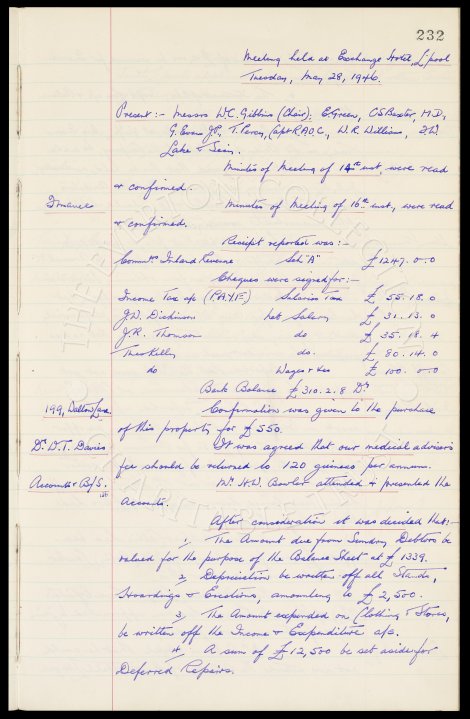 232
Meeting held at Exchange Hotel, L'pool
Tuesday, May 28, 1946.
Present :- Messrs W.C. Gibbins (Chair), E. Green, C.S. Baxter, M.D.,
G. Evans J.P., T. Percy, Capt R.A.O.C., W.R. Williams, 
Lake &
Minutes of Meeting of 14th inst, were read
& confirmed.
Finances Minutes of Meeting of 16th inst, were read
& confirmed.
Receipt reported was :-
Commrs Inland Revenue Sch "A" £1247.0.0
Cheques were signed for :-
Income Tax a/c (P.A.Y.E.) Salaries Tax £ 55.18.0
J.W. Dickinson net Salary £ 31.13.0
J.R. Thomson do £ 35.18.4
Theo Kelly do. £ 80.14.0
do Wages & Exs £ 100.0.0
Bank Balance £310.2.8 Dr
199, Walton Lane Confirmation was given to the purchase
of this property for £550.
Dr. D.T. Davies It was agreed that our medical advisors
fee should be returned to 120 guineas per annum.
Accounts & B/S. Mr H.W. Bowler attended & presented the
Accounts.
After consideration it was decided that :-
1, The Amount due from Sundry Debtors be
valued for the purpose of the Balance Sheet at £1339.
2, Depreciation be written off all Stands,
Hoardings & Erections, amounting to £2,500.
3, The Amount expended on Clothing & Stores,
be written off the Income & Expenditure a/c.
4, A sum of £12,500 be set aside for
Deferred Repairs.
THE EVERTON COLLECTION
CHARITABLE TRUST